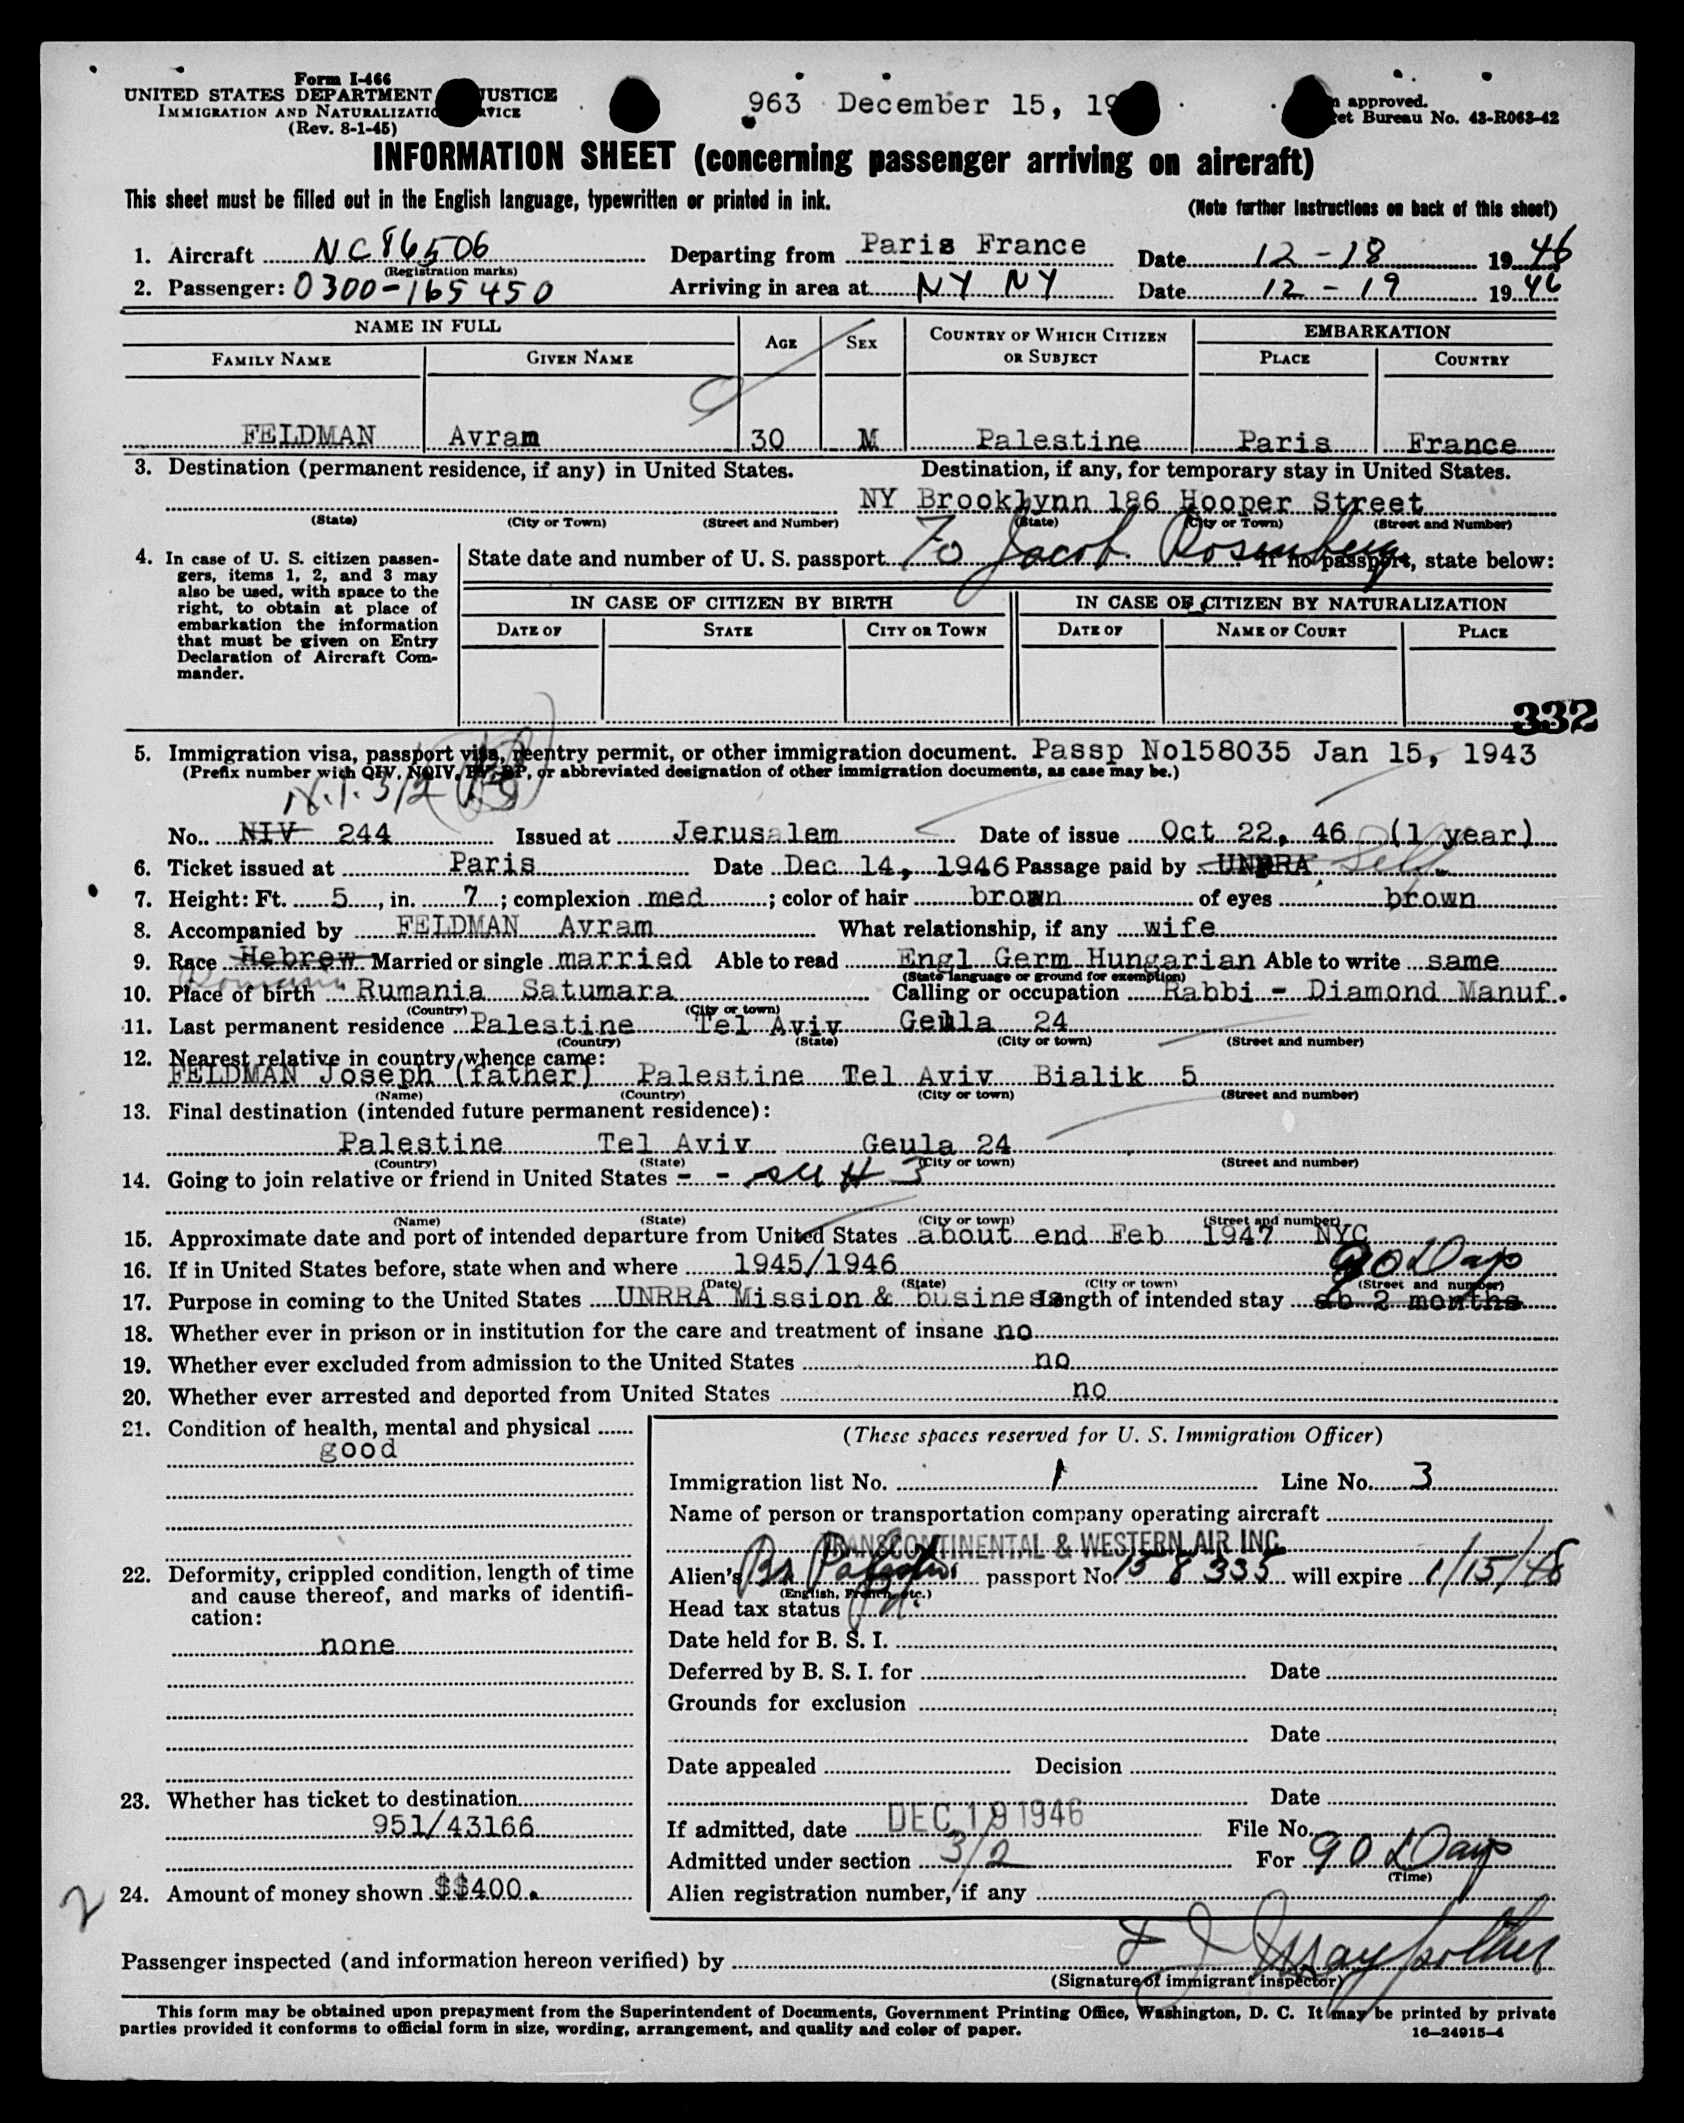 Form I-466
UNITED STATES DEPARTMENT JUSTICE
IMMIGRATION AND NATURALIZATION SERVICE
(Rev. 8-1-45)
963 December 15, 19
approved.
Budget Bureau No. 43-R063-42
INFORMATION SHEET (concerning passenger arriving on aircraft)
This sheet must be filled out in the English language, typewritten or printed in ink.
(Note further instructions on back of this sheet)
1. Aircraft NC 86506 Departing from Paris France Date 12-18 1946
(Registration marks)
2. Passenger: 0300-165450 Arriving in area at NY NY Date 12-19 1946
NAME IN FULL AGE SEX COUNTRY OF WHICH CITIZEN OR SUBJECT EMBARKATION
FAMILY NAME GIVEN NAME PLACE COUNTRY
FELDMAN Avram 30 M Palestine Paris France
3. Destination (permanent residence, if any) in United States. Destination, if any, for temporary stay in United States.
NY Brooklynn 186 Hooper Street
(State) (City or Town) (Street and Number) (State) (City or Town) (Street and Number)
4. In case of U. S. citizen passengers, items 1, 2, and 3 may also be used, with space to the right, to obtain at place of embarkation the information that must be given on Entry Declaration of Aircraft Commander.
State date and number of U. S. passport To Jacob Rosenberg If no passport, state below:
IN CASE OF CITIZEN BY BIRTH IN CASE OF CITIZEN BY NATURALIZATION
DATE OF STATE CITY OR TOWN DATE OF NAME OF COURT PLACE
332
5. Immigration visa, passport visa, reentry permit, or other immigration document. Passp No158035 Jan 15, 1943
(Prefix number with QIV, NQIV, PV, RP, or abbreviated designation of other immigration documents, as case may be.)
N.I. 3/2
No. NIV 244 Issued at Jerusalem Date of issue Oct 22, 46 (1 year)
6. Ticket issued at Paris Date Dec 14, 1946 Passage paid by UNRRA Self
7. Height: Ft. 5, in. 7; complexion med; color of hair brown of eyes brown
8. Accompanied by FELDMAN Avram What relationship, if any wife
9. Race Hebrew Married or single married Able to read Engl Germ Hungarian Able to write same
Romania (State language or ground for exemption)
10. Place of birth Rumania Satumara Calling or occupation Rabbi - Diamond Manuf.
(Country) (City or town)
11. Last permanent residence Palestine Tel Aviv Geula 24
(Country) (State) (City or town) (Street and number)
12. Nearest relative in country whence came:
FELDMAN Joseph (father) Palestine Tel Aviv Bialik 5
(Name) (Country) (City or town) (Street and number)
13. Final destination (intended future permanent residence):
Palestine Tel Aviv Geula 24
(Country) (State) (City or town) (Street and number)
14. Going to join relative or friend in United States - - see # 3
(Name) (State) (City or town) (Street and number)
15. Approximate date and port of intended departure from United States about end Feb 1947 NYC
16. If in United States before, state when and where 1945/1946 90 Days
(Date) (State) (City or town) (Street and number)
17. Purpose in coming to the United States UNRRA Mission & business Length of intended stay ab 2 months
18. Whether ever in prison or in institution for the care and treatment of insane no
19. Whether ever excluded from admission to the United States no
20. Whether ever arrested and deported from United States no
21. Condition of health, mental and physical
good
(These spaces reserved for U. S. Immigration Officer)
Immigration list No. 1 Line No. 3
Name of person or transportation company operating aircraft
TRANSCONTINENTAL & WESTERN AIR INC
22. Deformity, crippled condition, length of time and cause thereof, and marks of identification:
none
Alien's Br Palestine passport No. 158335 will expire 1/15/48
(English, French, etc.)
Head tax status
Date held for B. S. I.
Deferred by B. S. I. for Date
Grounds for exclusion
Date
Date appealed Decision
23. Whether has ticket to destination
951/43166
Date
If admitted, date DEC 19 1946 File No.
Admitted under section 3/2 For 90 Days
(Time)
2
24. Amount of money shown $$400.
Alien registration number, if any
Passenger inspected (and information hereon verified) by
(Signature of immigrant inspector)
This form may be obtained upon prepayment from the Superintendent of Documents, Government Printing Office, Washington, D. C. It may be printed by private
parties provided it conforms to official form in size, wording, arrangement, and quality and color of paper.
16—24915-4